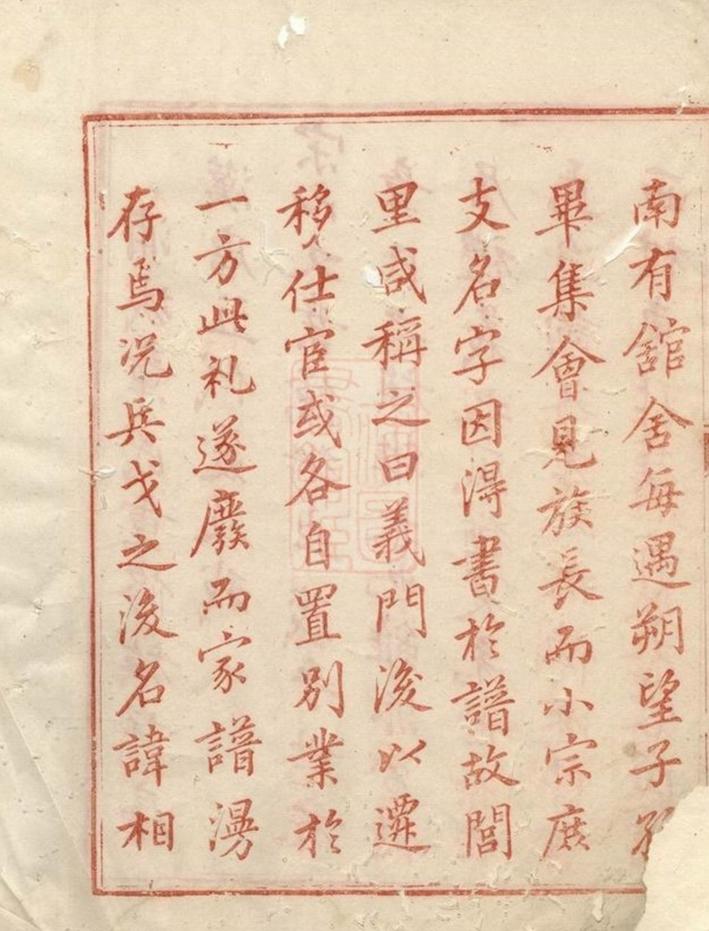 南有舘舍每遇朔望子孫
畢集會見族長而小宗庶
支名字因淂書於譜故閭
里咸稱之曰義門後以遷
移仕宦或各自置別業於
一方此礼遂廢而家譜漫
存焉况兵戈之後名諱相